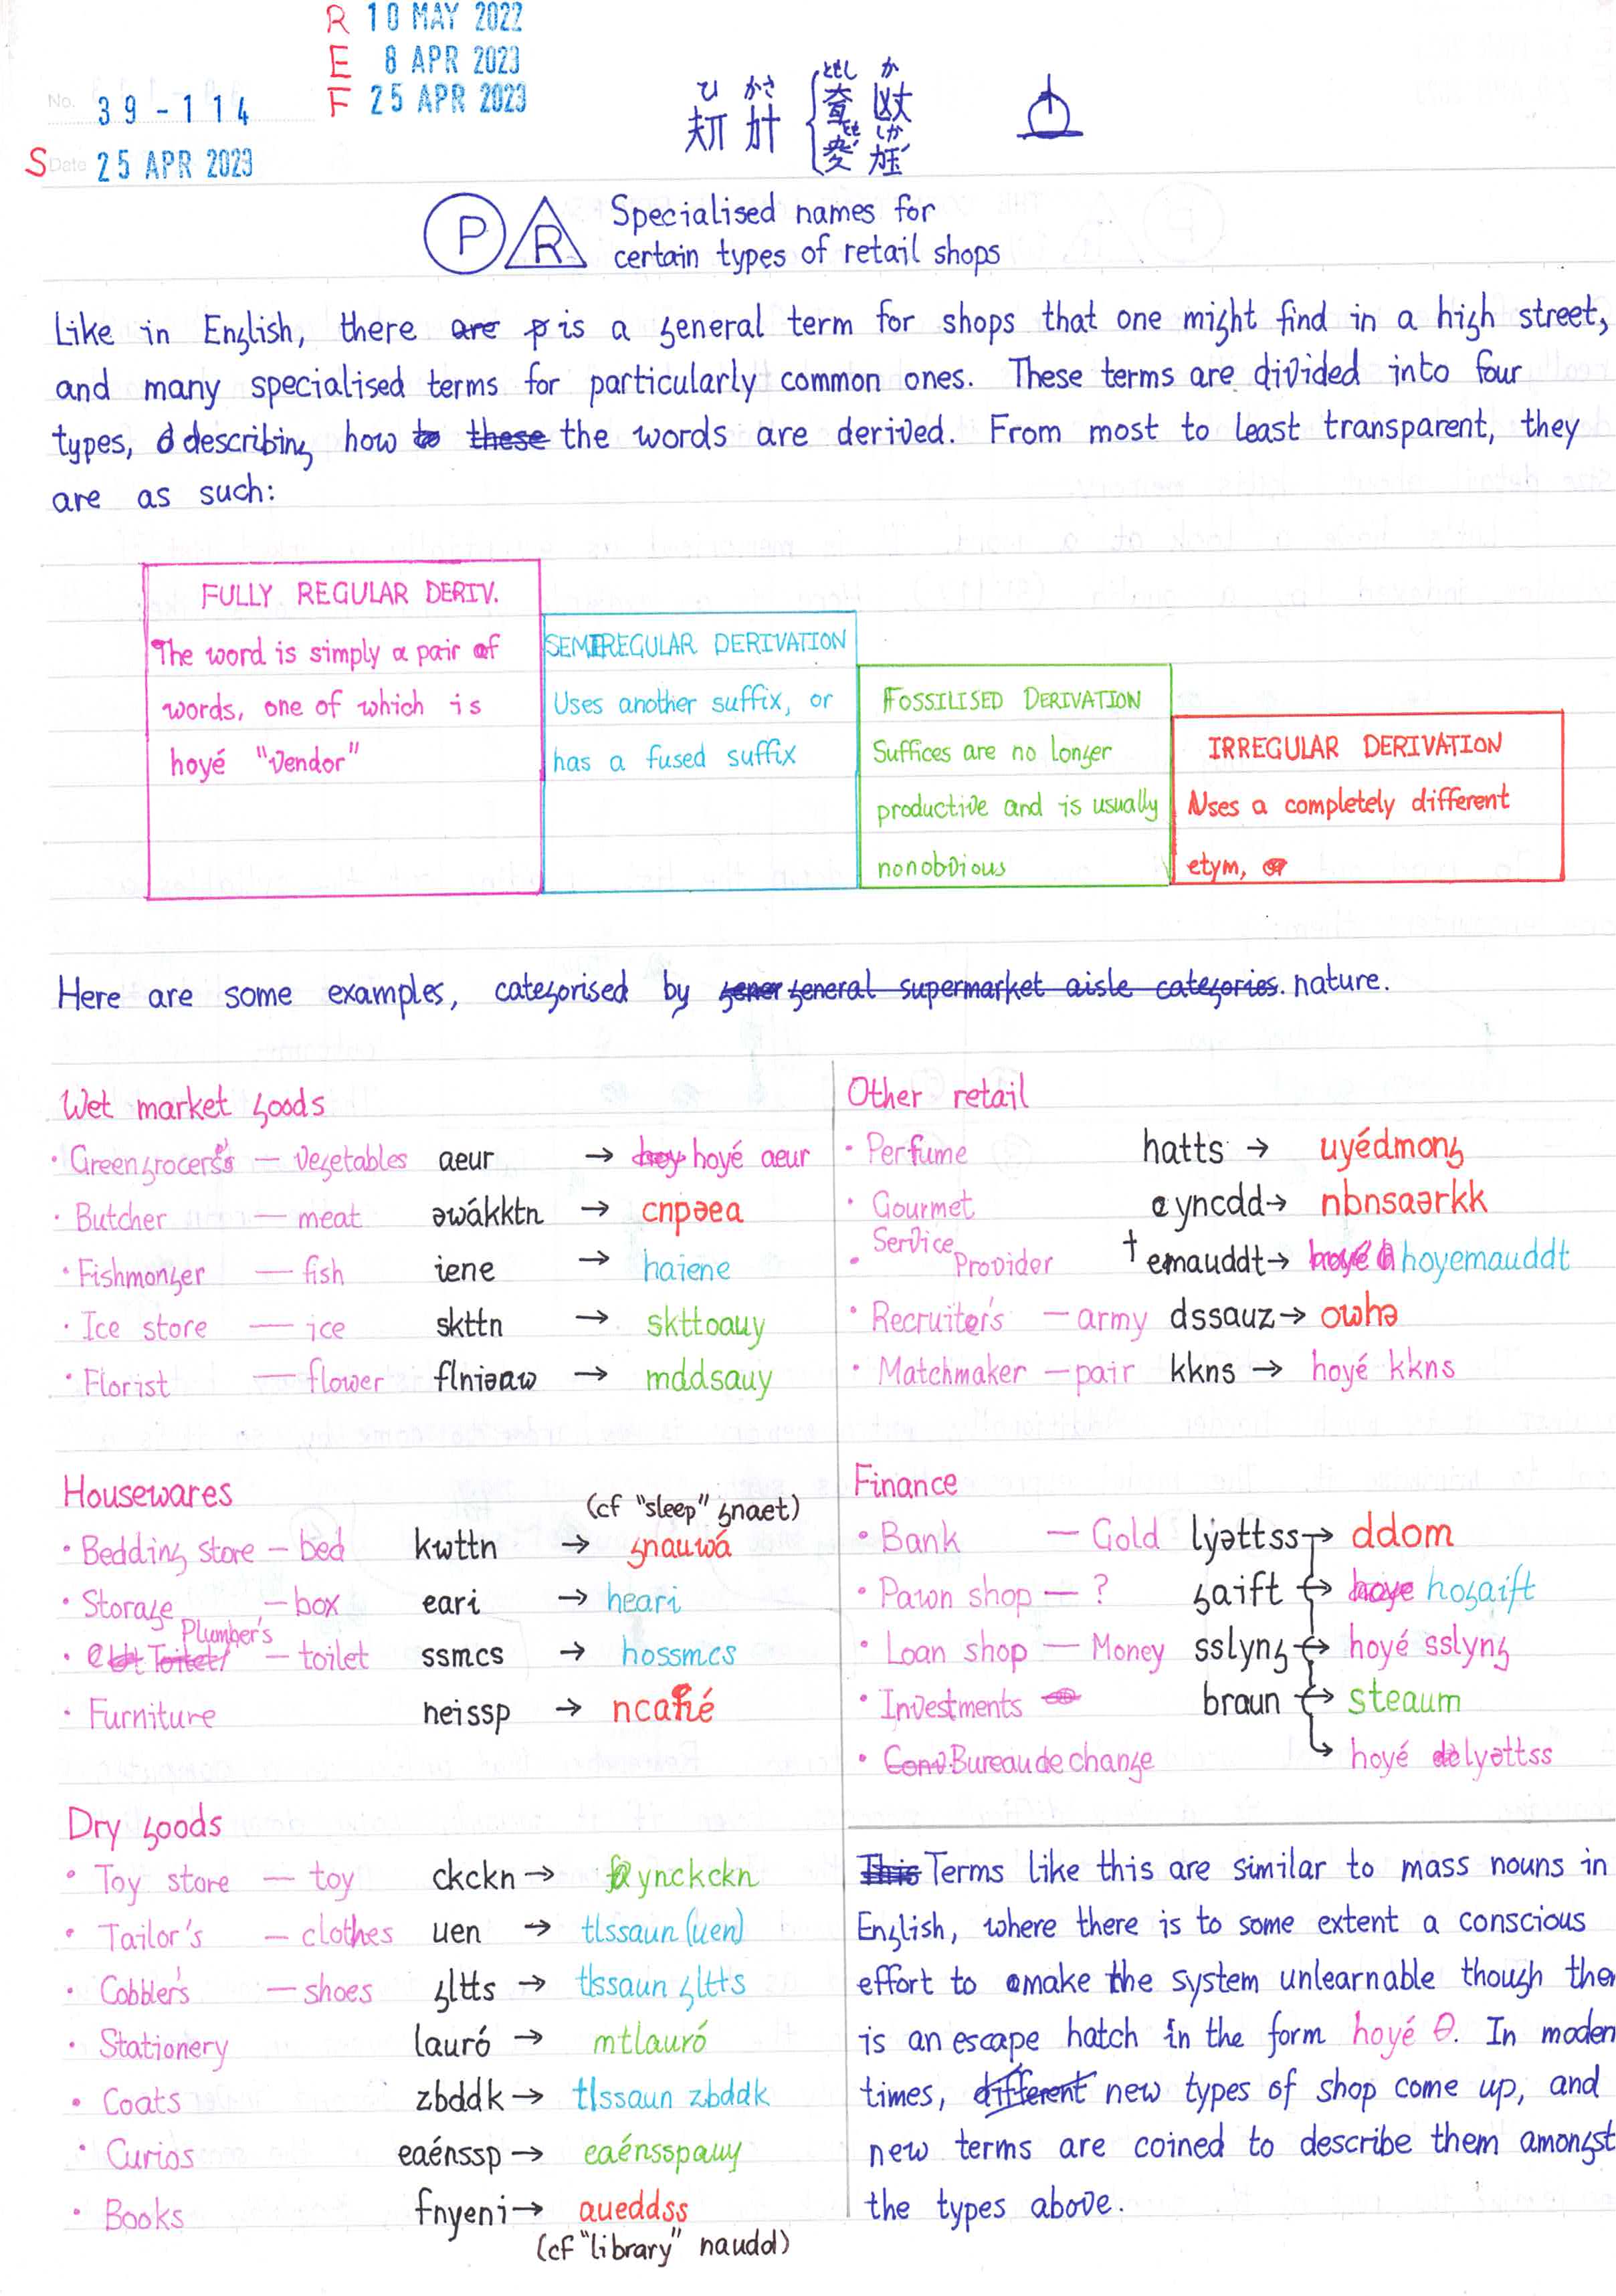 R 10 MAY 2022
E 8 APR 2023
F 25 APR 2023
No. 39-114
S Date 25 APR 2023
ひ かさ ともし か
とも しが
P R Specialised names for
certain types of retail shops
Like in English, there are p is a general term for shops that one might find in a high street,
and many specialised terms for particularly common ones. These terms are divided into four
types, d describing how to these the words are derived. From most to least transparent, they
are as such:
FULLY REGULAR DERIV.
The word is simply a pair of
words, one of which is
hoyé "vendor"
SEMIREGULAR DERIVATION
Uses another suffix, or
has a fused suffix
FOSSILISED DERIVATION
Suffices are no longer
productive and is usually
nonobvious
IRREGULAR DERIVATION
Uses a completely different
etym, or
Here are some examples, categorised by gener general supermarket aisle categories. nature.
Wet market goods
• Greengrocers's — vegetables aeur → hoy hoyé aeur
• Butcher — meat əwákktn → cnpəea
• Fishmonger — fish iene → haiene
• Ice store — ice skttn → skttoauy
• Florist — flower flniəaw → mddsauy
Housewares
(cf "sleep" gnaet)
• Bedding store — bed kwttn → gnauwá
• Storage — box eari → heari
• Plumber's — toilet ssmcs → hossmcs
• Furniture neissp → ncahé
Dry goods
• Toy store — toy ckckn → ynckckn
• Tailor's — clothes uen → tlssaun (uen)
• Cobbler's — shoes gltts → tlssaun gltts
• Stationery lauró → mtlauró
• Coats zbddk → tlssaun zbddk
• Curios eaénssp → eaénsspauy
• Books fnyeni → aueddss
(cf "library" naudd)
Other retail
• Perfume hatts → uyédmong
• Gourmet eyncdd → nbnsaərkk
• Service Provider †emauddt → hoyé hoyemauddt
• Recruiter's — army dssauz → owhə
• Matchmaker — pair kkns → hoyé kkns
Finance
• Bank — Gold lyəttss → ddom
• Pawn shop — ? gaift → hoye hogaift
• Loan shop — Money sslyng → hoyé sslyng
• Investments braun → steaum
• Conv. Bureau de change → hoyé lyəttss
This Terms like this are similar to mass nouns in
English, where there is to some extent a conscious
effort to make the system unlearnable though ther
is an escape hatch in the form hoyé θ. In moden
times, different new types of shop come up, and
new terms are coined to describe them amongst
the types above.